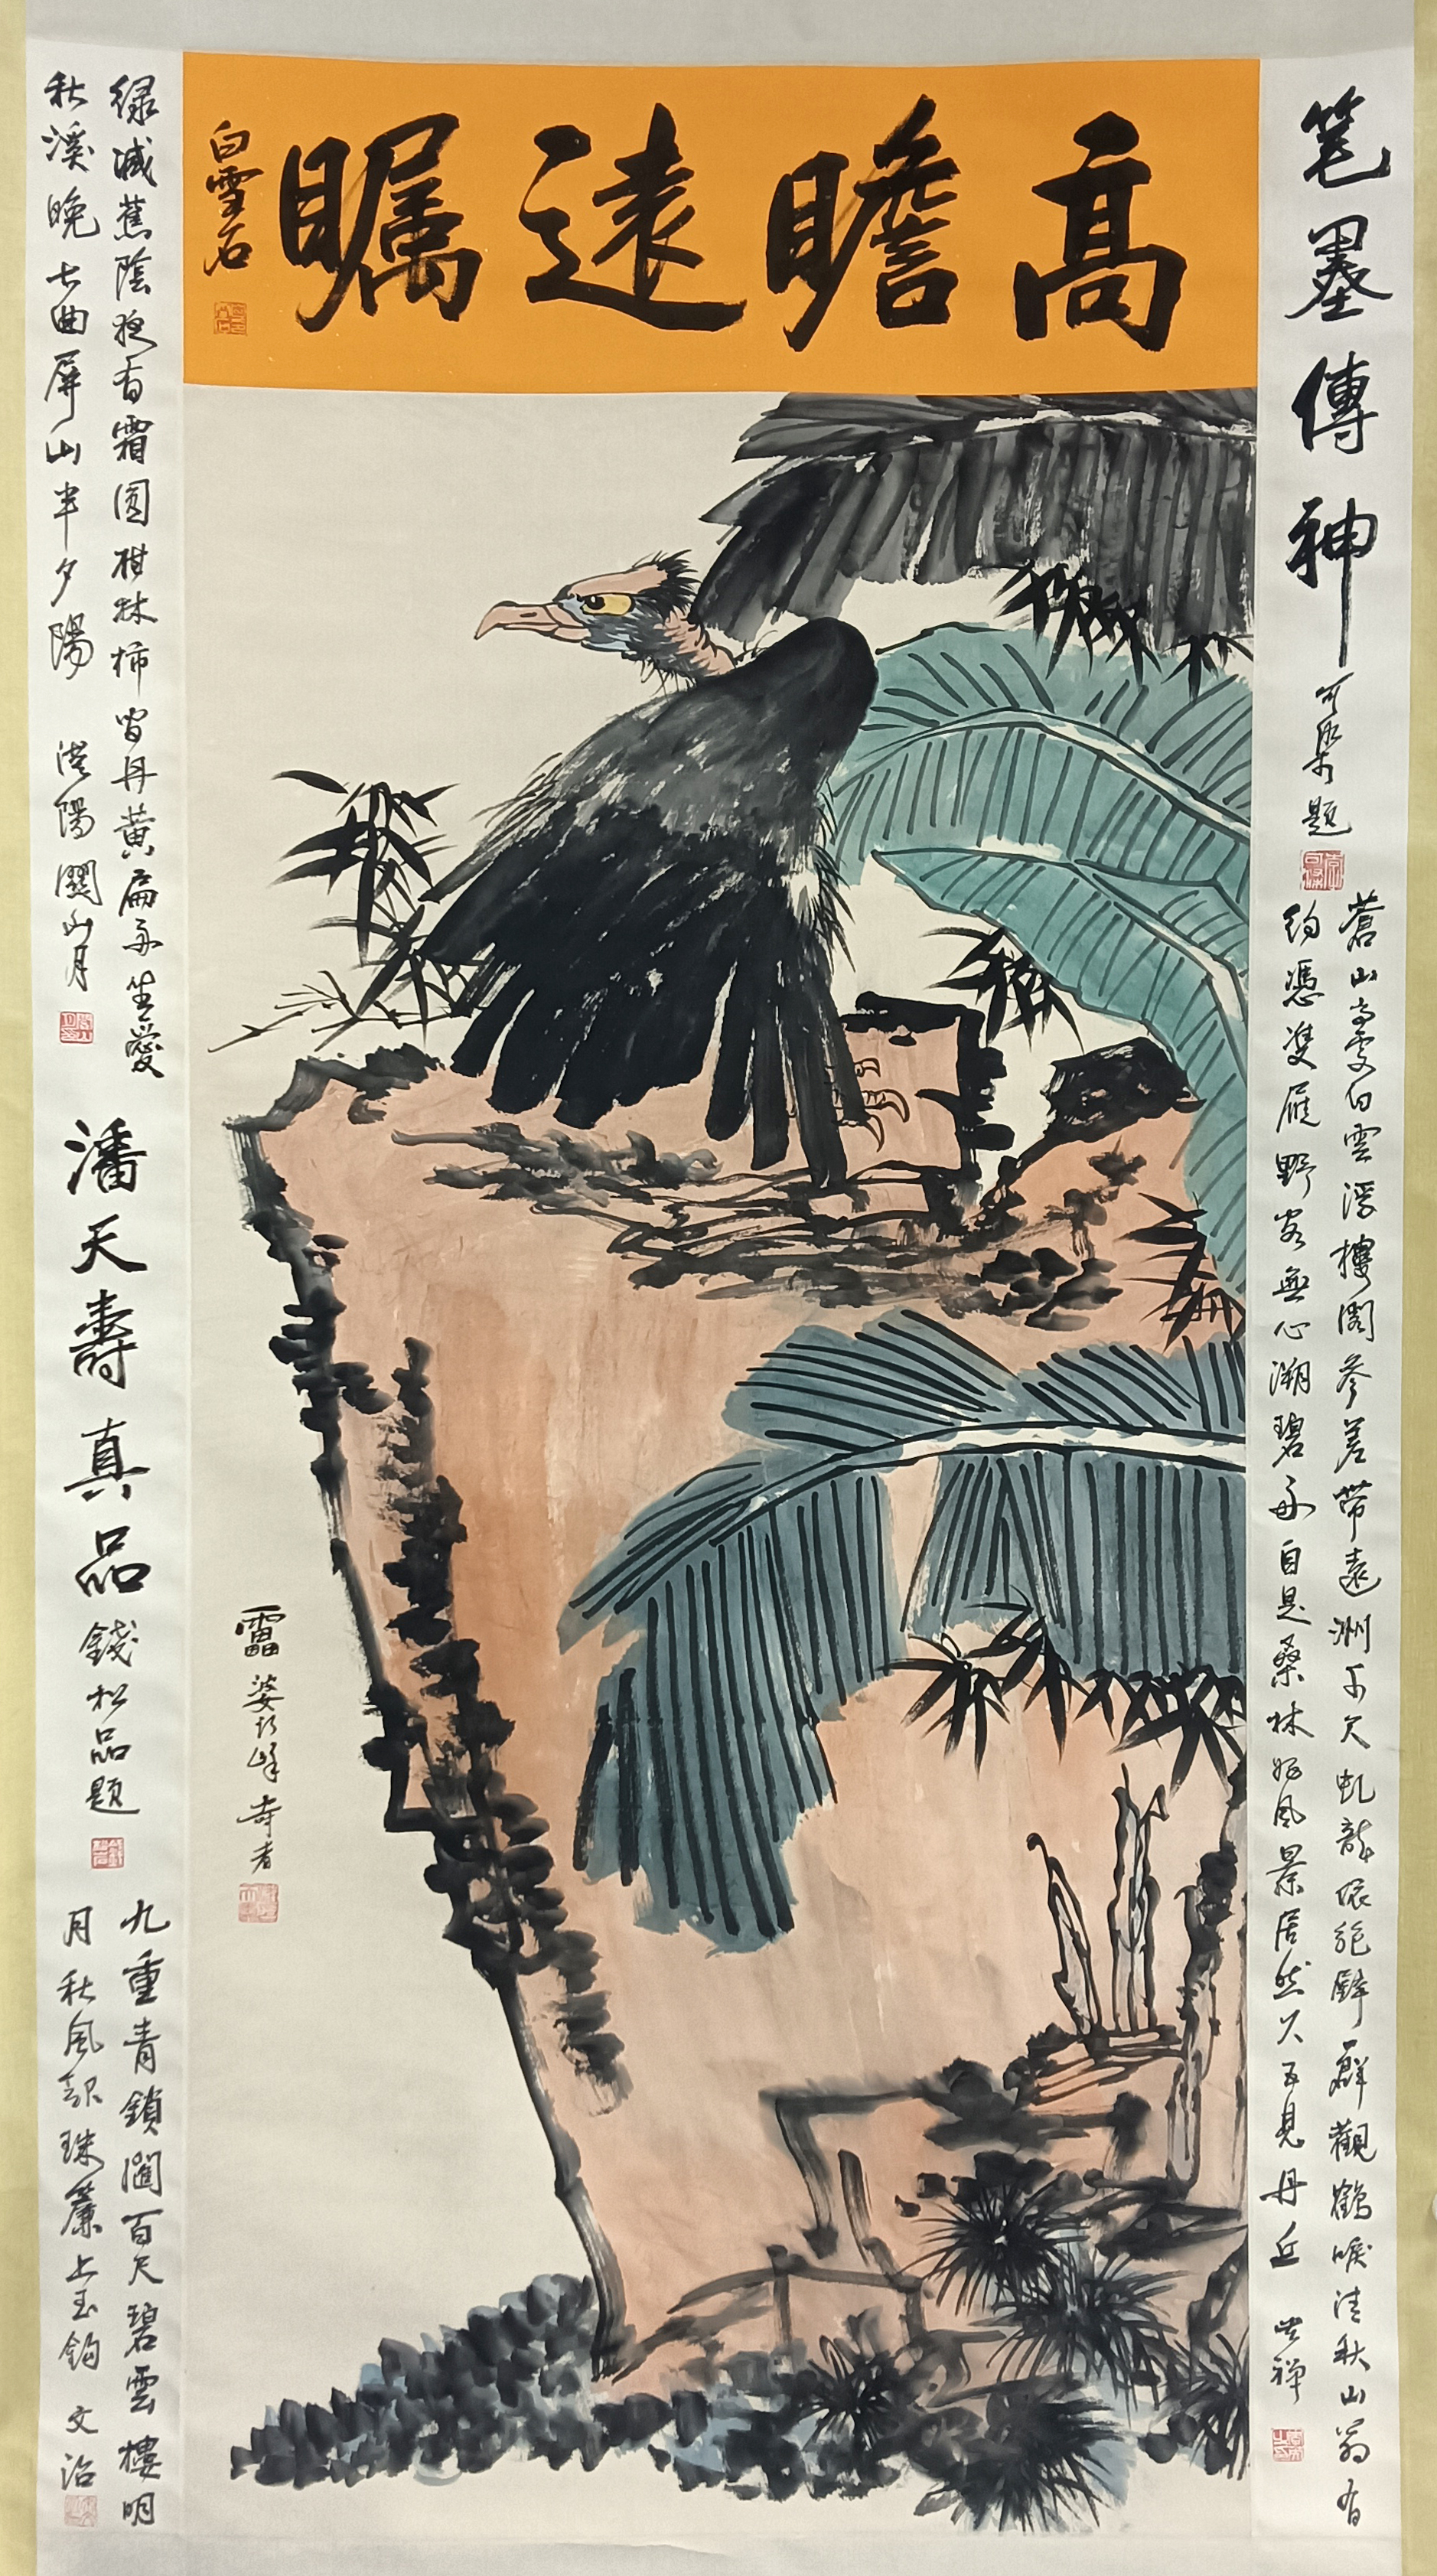 高瞻遠矚
白雪石
笔墨傳神
可染題
蒼山高處白雲浮樓閣參差帶遠洲不欠虬龍依絕壁群觀鶴唳清秋山翁有
約憑雙雁野客無心溯碧舟自是桑林好風景居然又見丹丘
綠減蕉陰夜有霜園柑林柿皆丹黃扁舟生愛
秋溪晚七曲屏山半夕陽
漠陽關山月
潘天壽真品
錢松喦題
九重青鎖闥百尺碧雲樓明
月秋風起珠簾上玉鉤
文治
雷婆頭峰壽者